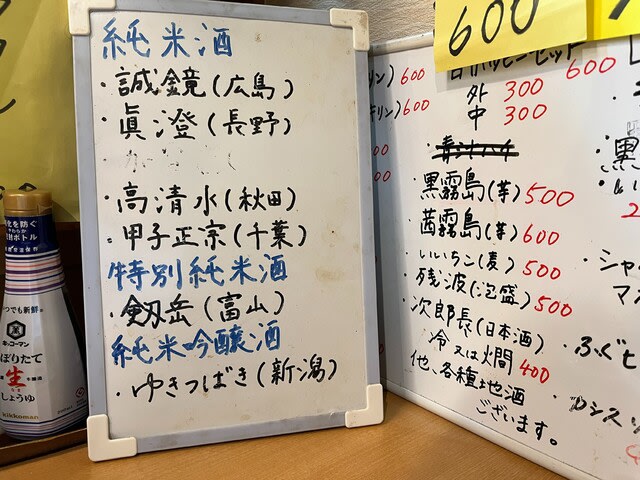 純米酒
・誠鏡(広島)
・眞澄(長野)
・高清水(秋田)
・甲子正宗(千葉)
特別純米酒
・剱岳(富山)
純米吟醸酒
・ゆきつばき(新潟)
600
リン) 600
キリン) 600
600
外 300
中 300
黒霧島(芋) 500
茜霧島(芋) 600
・いいちこ(麦) 500
・残波(泡盛) 500
・次郎長(日本酒)
冷又は燗 400
他、各種地酒
ございます。
・黒
・シャ
マ
・ふぐヒ
化を防ぐ
鮮ボトル
いつでも新鮮
キッコーマン
ぼりたて
生
しょうゆ
kikkoman